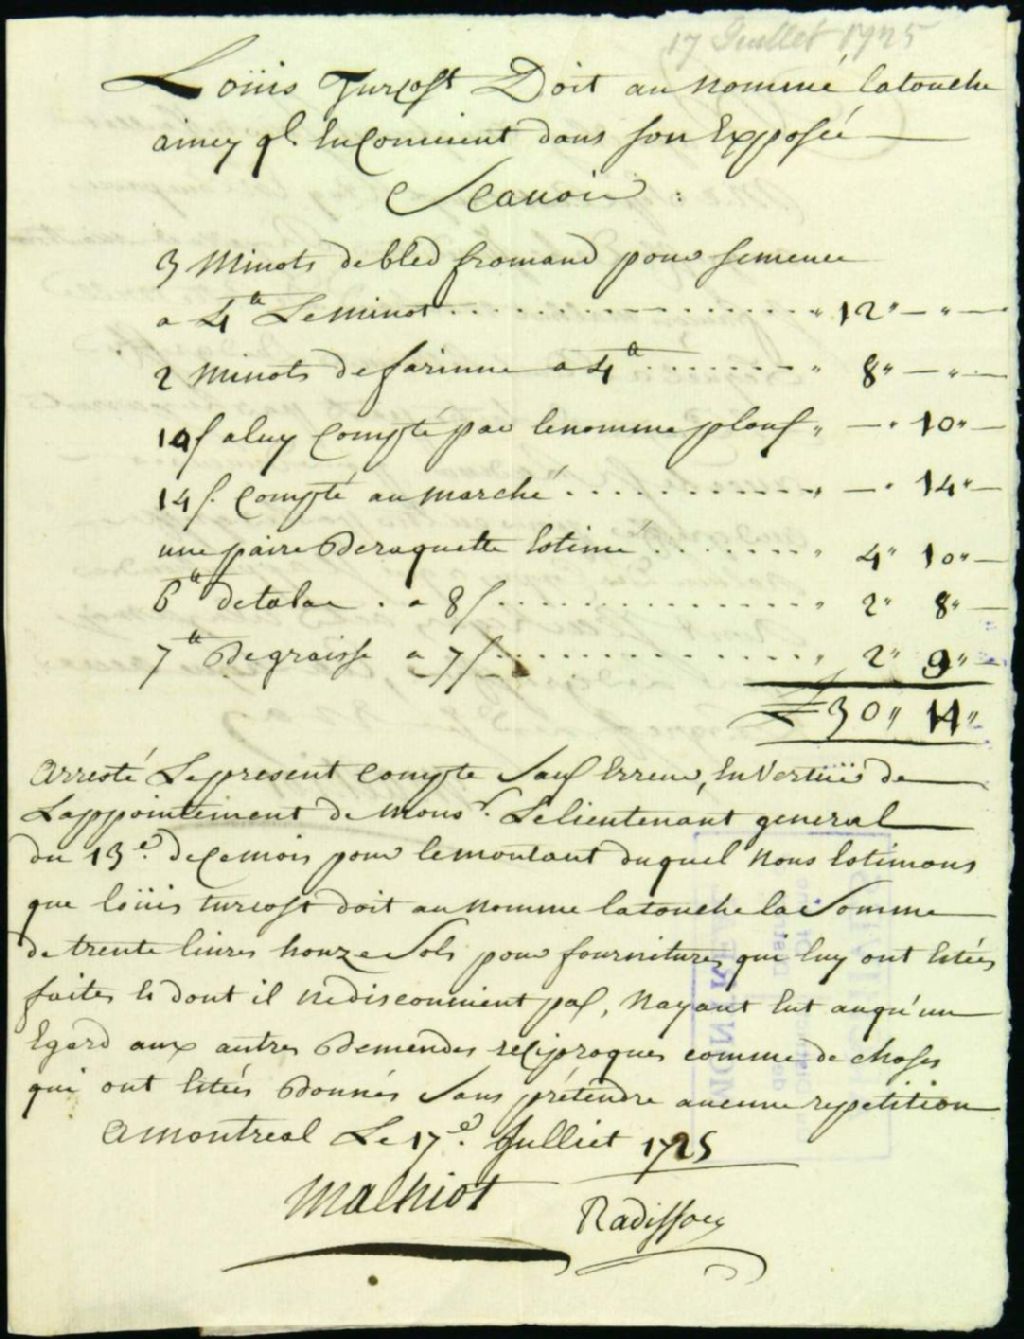 17 Juillet 1725
Loüis Turcost Doit au nommé latouche
ainey ql. En Convient dans son Exposée
Scauoir :
3 Minots de bled fromand pour semence
a 4lt Le minot . . . . . . . . . . . . . . . " 12 " — " —
2 minots de farinne a 4lt . . . . . . . . " 8 " — " —
10s a luy Compté par le nomme plouf " — " 10 " —
14s. Compté au marché . . . . . . . . . . " — " 14 " —
une paire De raquette Estimé . . . . . . . " 4 " 10 " —
6lt de tabac . a 8s . . . . . . . . . . . . . . " 2 " 8 " —
7lt De graisse a 7s . . . . . . . . . . . . . . " 2 " 9 "
£ 30 " 11 "
Arresté Le present Compte Sauf Erreur, En Vertüe de
Lappointement de Monsr. Le lieutenant general
du 13e. de Ce mois pour le montant duquel Nous Estimons
que loüis turcost doit au nomme latouche la Somme
de trente liures honze Sols pour fournitures qui luy ont Estées
faites Et dont il ne disconuient pas, Nayant Eut auqu'un
Egard aux autres Demendes reciproques comme de choses
qui ont Estées Donnés Sans prétendre aucunne repetition
A montreal Le 17e. Julliet 1725
Malhiot
Radisson
MONTREAL